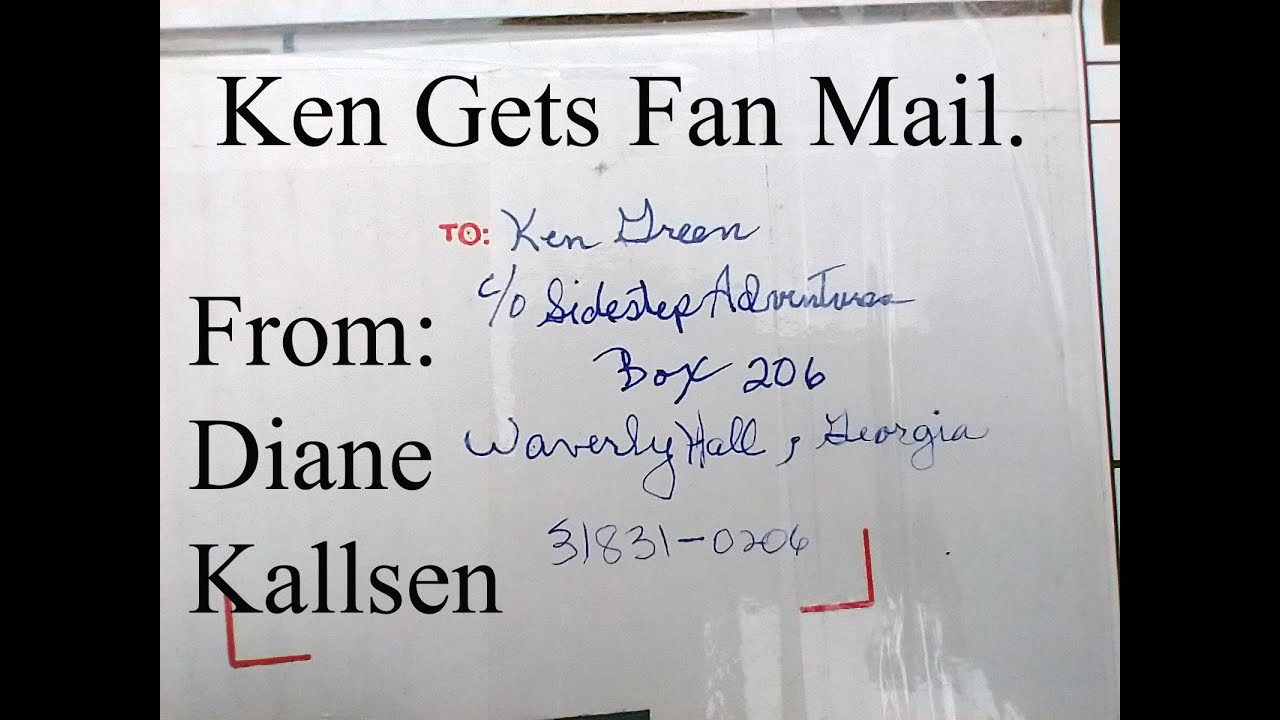 Ken Gets Fan Mail.
TO: Ken Green
c/o Sidestep Adventures
From:
Box 206
Diane
Waverly Hall, Georgia
31831-0206
Kallsen